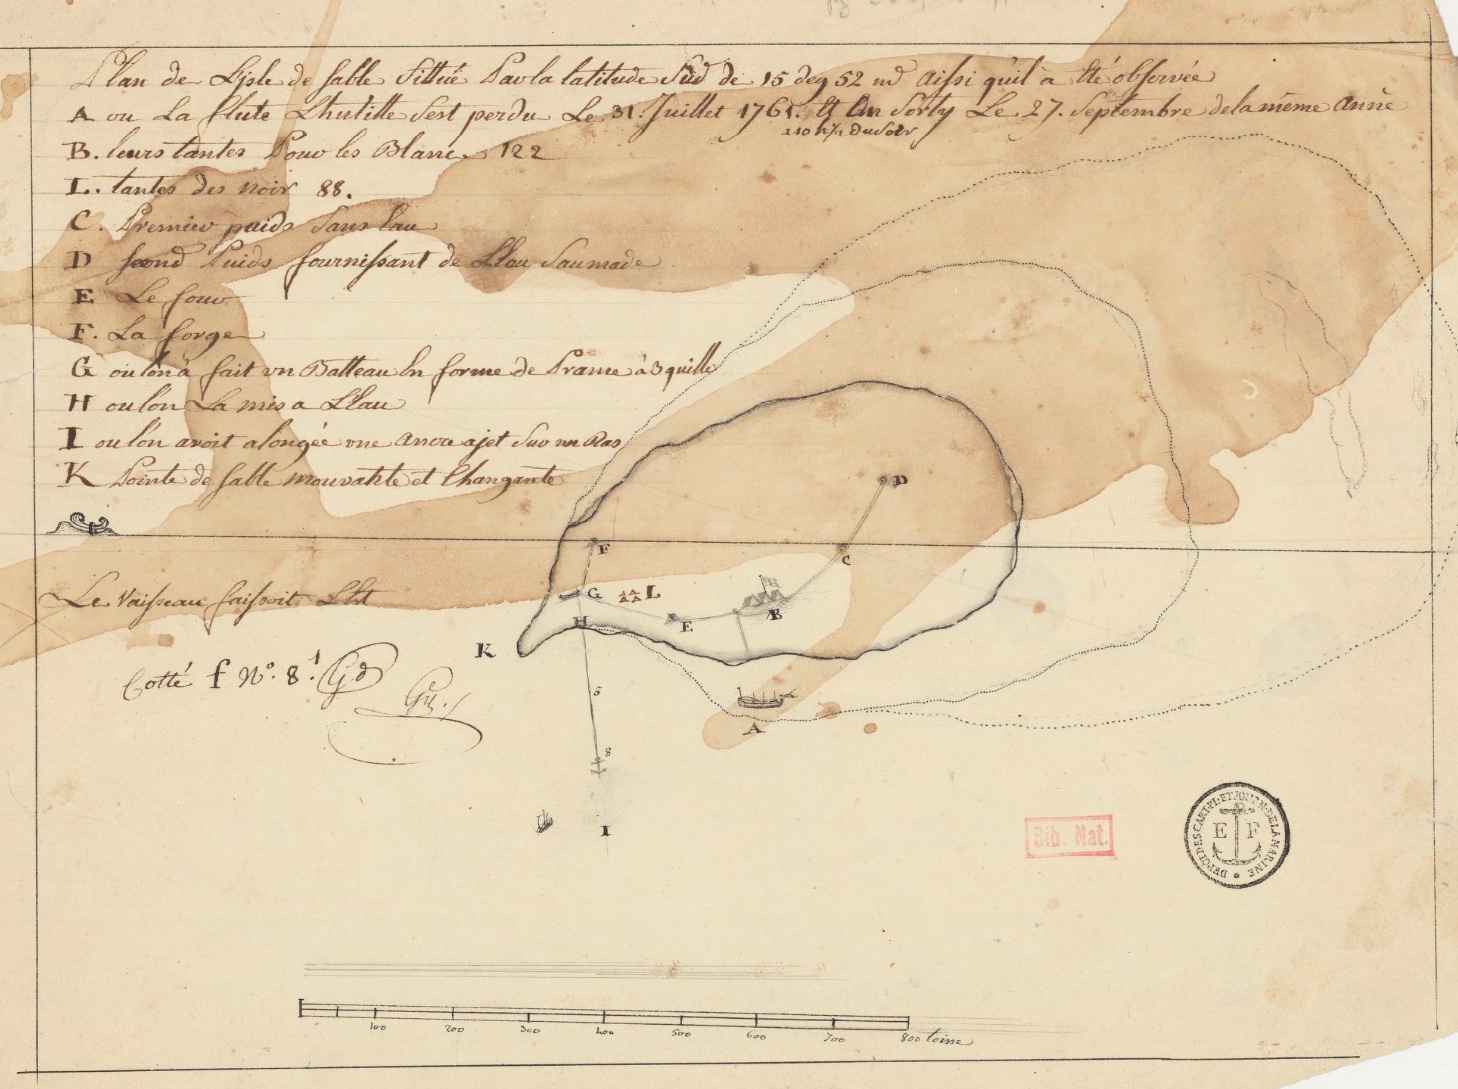 Plan de Lisle de sable Sittué Par la latitude Sud de 15 deg 52 md Aissi quil a Eté observée
A ou La flute Lhutille Sest perdu Le 31. Juillet 1761. Et En Sorty Le 27. Septembre dela méme Année
a 10 h½ du Soir
B. leurs tantes Pour les Blanc. 122
L. tantes des noir 88.
C. Premier puids Sans Eau
D second Puids fournissant de Leau Saumade
E Le four
F. La forge
G ou lon à fait vn Batteau En forme de Prame à 3 quille
H ou lon La mis a Leau
I ou lon avoit alongée vne Ancre ajet Sur un Ras
K Pointe de sable mouvatste et Changante
Le Vaisseau faissoit LEst
Cotté f N.º 8.
D
F
C
G L
B
H E
K
5
A
8
I
DEPOT DES CART. PL. ET JOURN. DE LA MARINE
E F
Bib. Nat.
100 200 300 400 500 600 700 800 toise